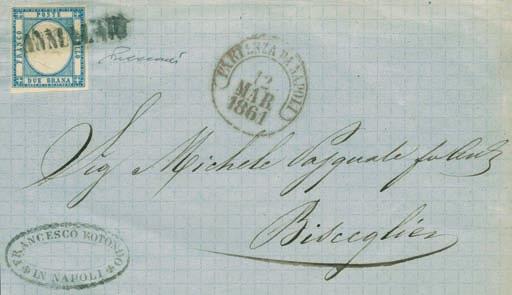 FRANCO POSTE BOLLO
DUE GRANA
ANNULLATO
PARTENZA DA NAPOLI
12
MAR
1861
Sig Michele Pasquale
Bisceglie
FRANCESCO ROTONDO
IN NAPOLI